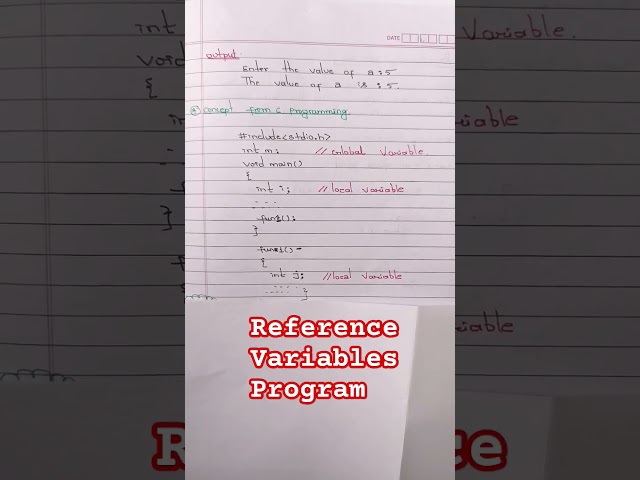 DATE
output
Enter the value of a : 5
The value of a is : 5.
concept from C Programming
#include<stdio.h>
int m; // Global Variable.
void main()
{
int i; // local variable
- - - -
fun1();
}
fun1()
{
int j; // local variable
- - - - }
Reference
Variables
Program